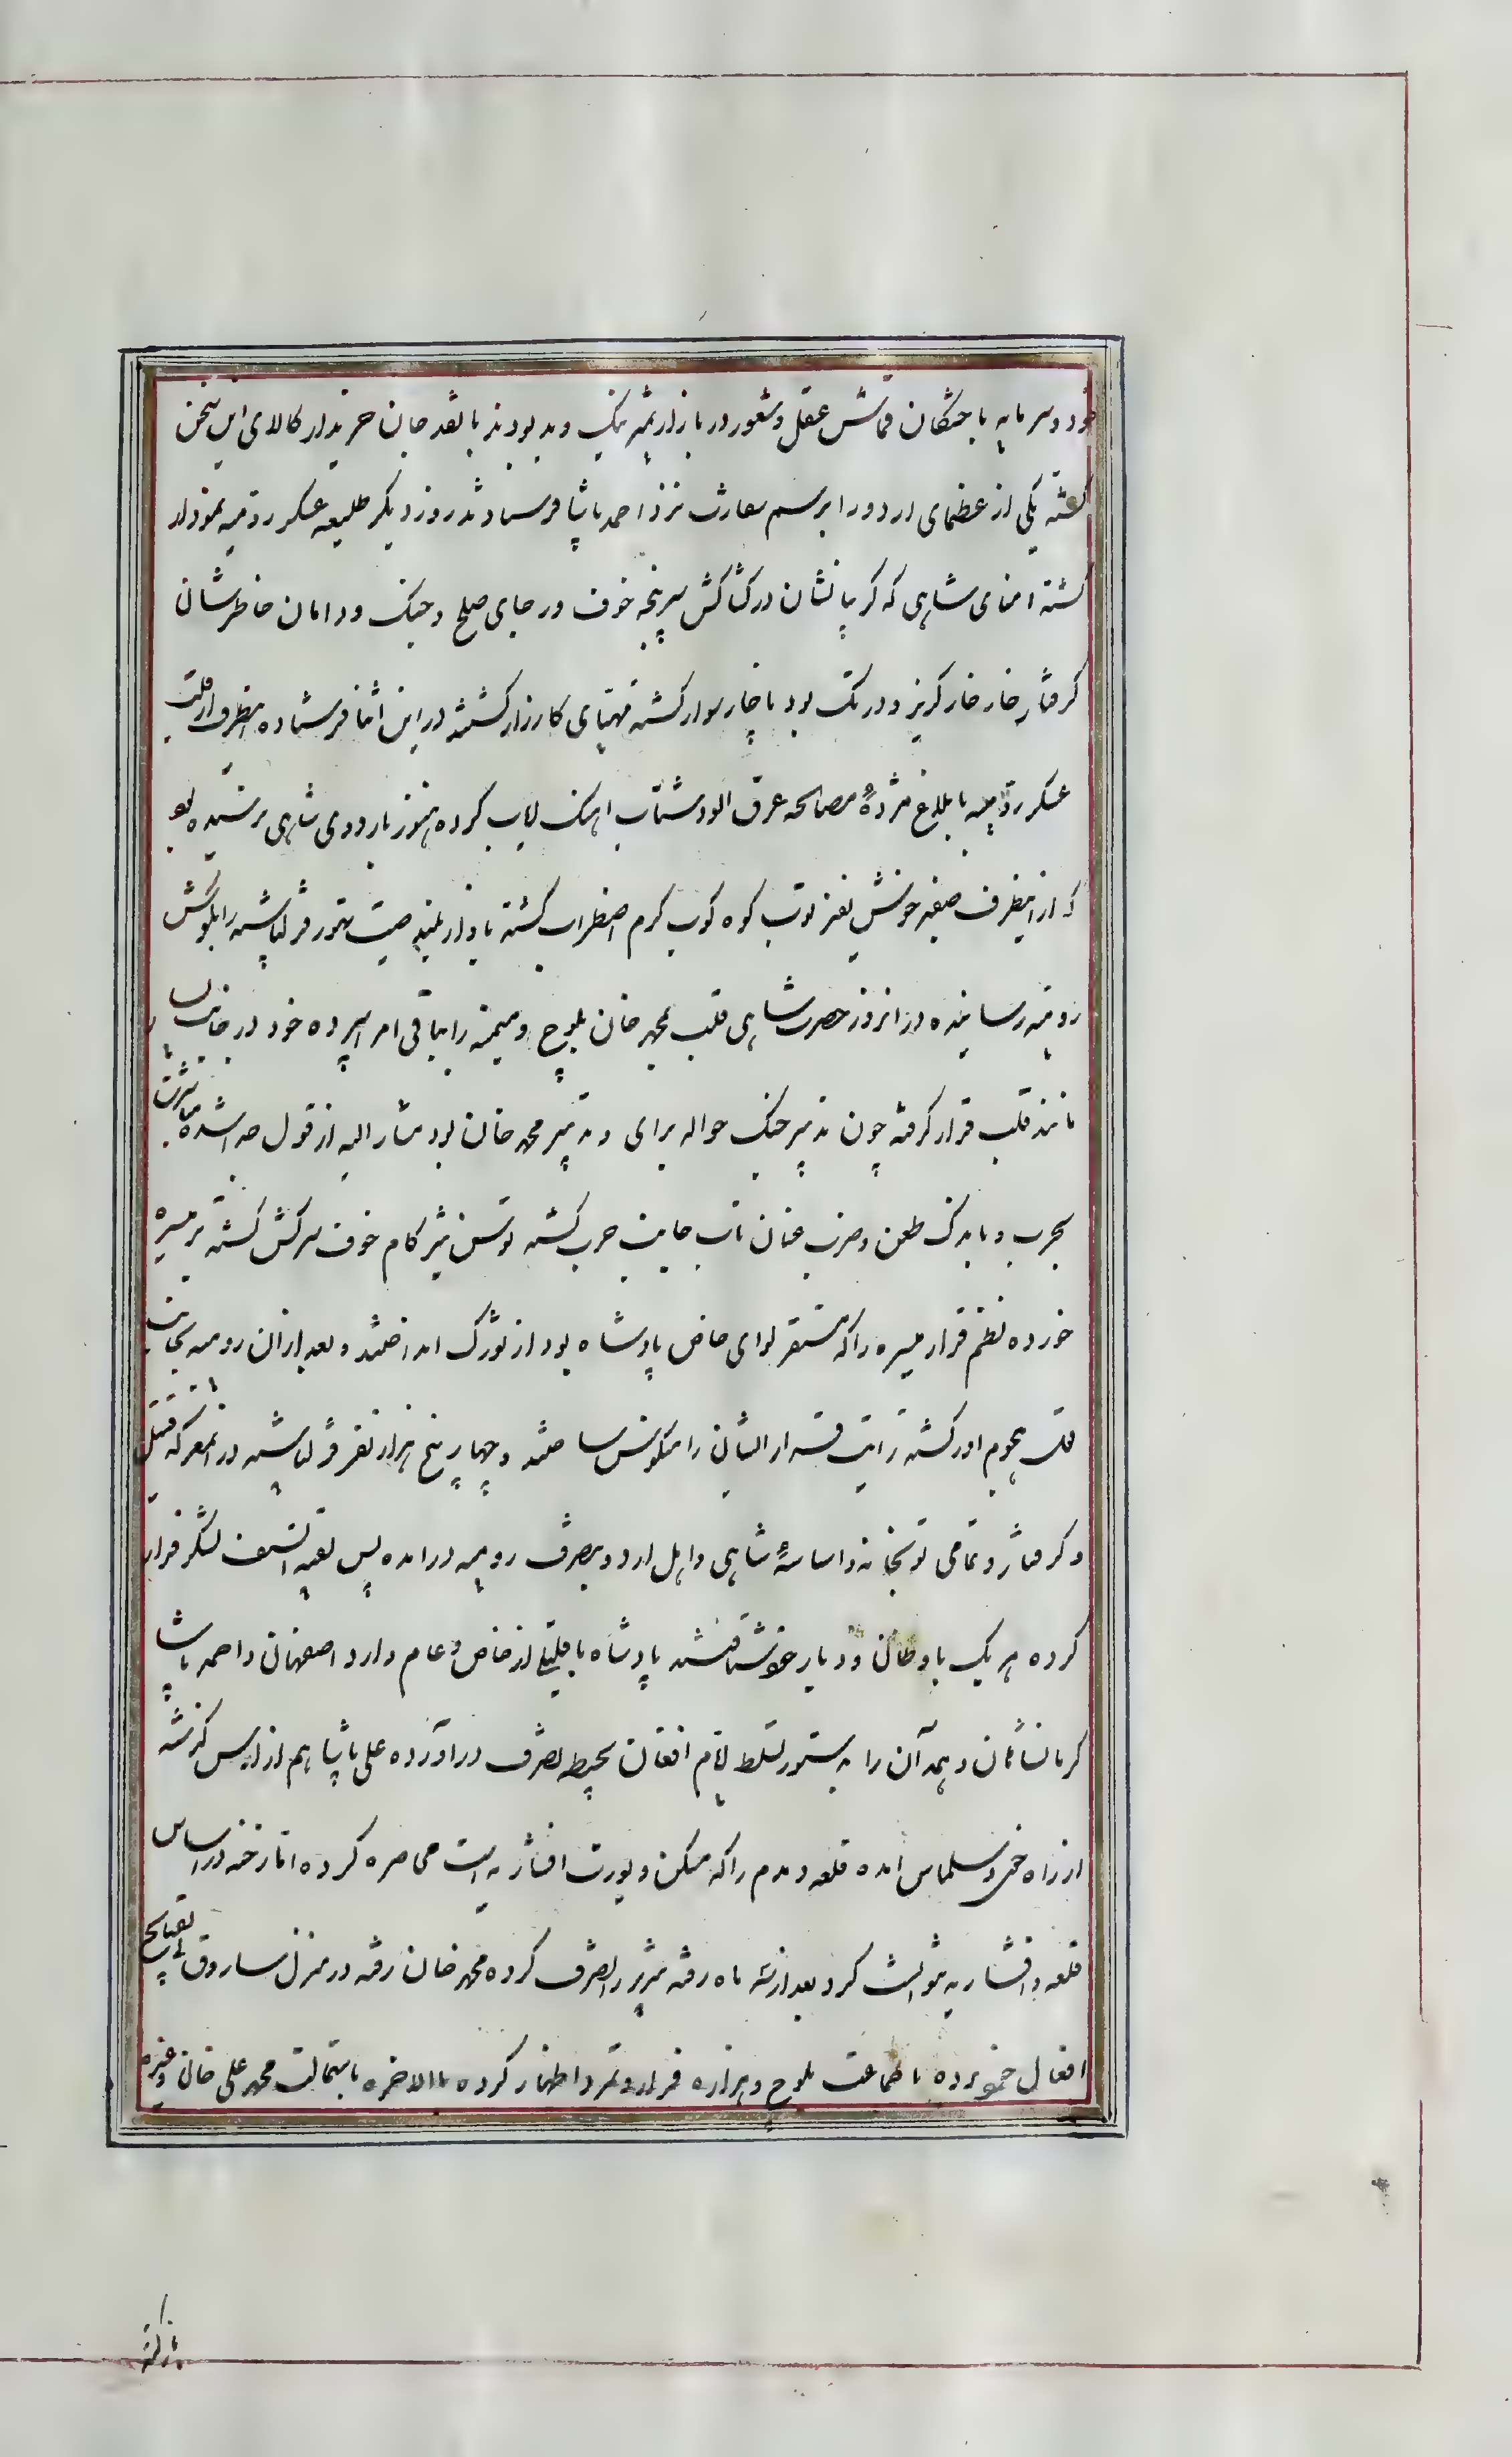 خود و سرمایه باختگان قماش عقل و شعور در بازار تمیز نیک و بد بودند با نقد جان خریدار کالای این سخن
گشته یکی از عظمای اردو را برسم سفارت نزد احمد پاشا فرستادند روز دیگر طلیعه عسکر رومیه نمودار
گشته امنای شاهی که گریبانشان در کشاکش سرپنجه خوف و رجای صلح و جنک و دامان خاطرشان
گرفتار خار خار گریز و درنک بود ناچار سوار گشته مهیای کارزار گشتند در این اثنا فرستاده اینطرف از ملاقات
عسکر رومیه بابلاغ مژدهٔ مصالحه عرق آلود شتاب اهنک ایاب کرده هنوز باردوی شاهی نرسیده بود
که از اینطرف صفیر خویش نفیر توپ کوه کوب گرم اضطراب گشته باواز بلند صیت تهور قزلباشیه را بگوش
رومیه رسانیده در آنروز حضرت شاهی قلب بمحمد خان بلوچ و میمنه را بباقی امرا سپرده خود در جانب
مانند قلب قرار گرفته چون تدبیر جنک حواله برای و تدبیر محمد خان بود مشار الیه از قول جدا شده مباشرت
بحرب و باندک طعن و ضرب عنان تاب جانب حرب گشته توسن تیز کام خوف سرکش گشته بر میسره
خورده نظم قرار میسره را که مستقر لوای خاص پادشاه بود از تورک انداختند و بعد از ان رومیه بجانب
قلب هجوم اور گشته رایت قرار ایشان را نکونس ساختند و چهار پنج هزار نفر قزلباشیه در انمعرکه قتیل
و گرفتار و تمامی توپخانه و اساسهٔ شاهی و اهل اردو بتصرف رومیه درامده پس بقیة السیف لشکر فرار
کرده هر یک باوطان و دیار خویش رفتند پادشاه با قلیلی از خاص و عام وارد اصفهان و احمد پاشا
کرمانشاهان و همدان را بدستور تسلط ایام افغان بحیطه تصرف دراورده علی پاشا هم از ارس گذشته
از راه خوی و سلماس امده قلعه دمدم را که مسکن و یورت افشاریه است محاصره کرده اما رخنه در اساس
قلعه و افشاریه نتوانست کرد بعد از سه ماه رفته تبریز را تصرف کرده محمد خان رفته در منزل ساروق بقبایح
افعال خود پی برده با جماعت بلوچ و هزاره فرار و تمرد اظهار کرده بالاخره باستمالت محمد علی خان و غیره
بازگشته